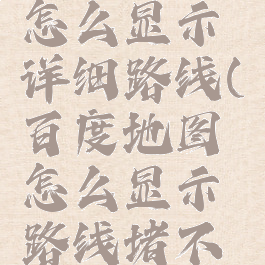 怎么显示
详细路线(
百度地图
怎么显示
路线堵不